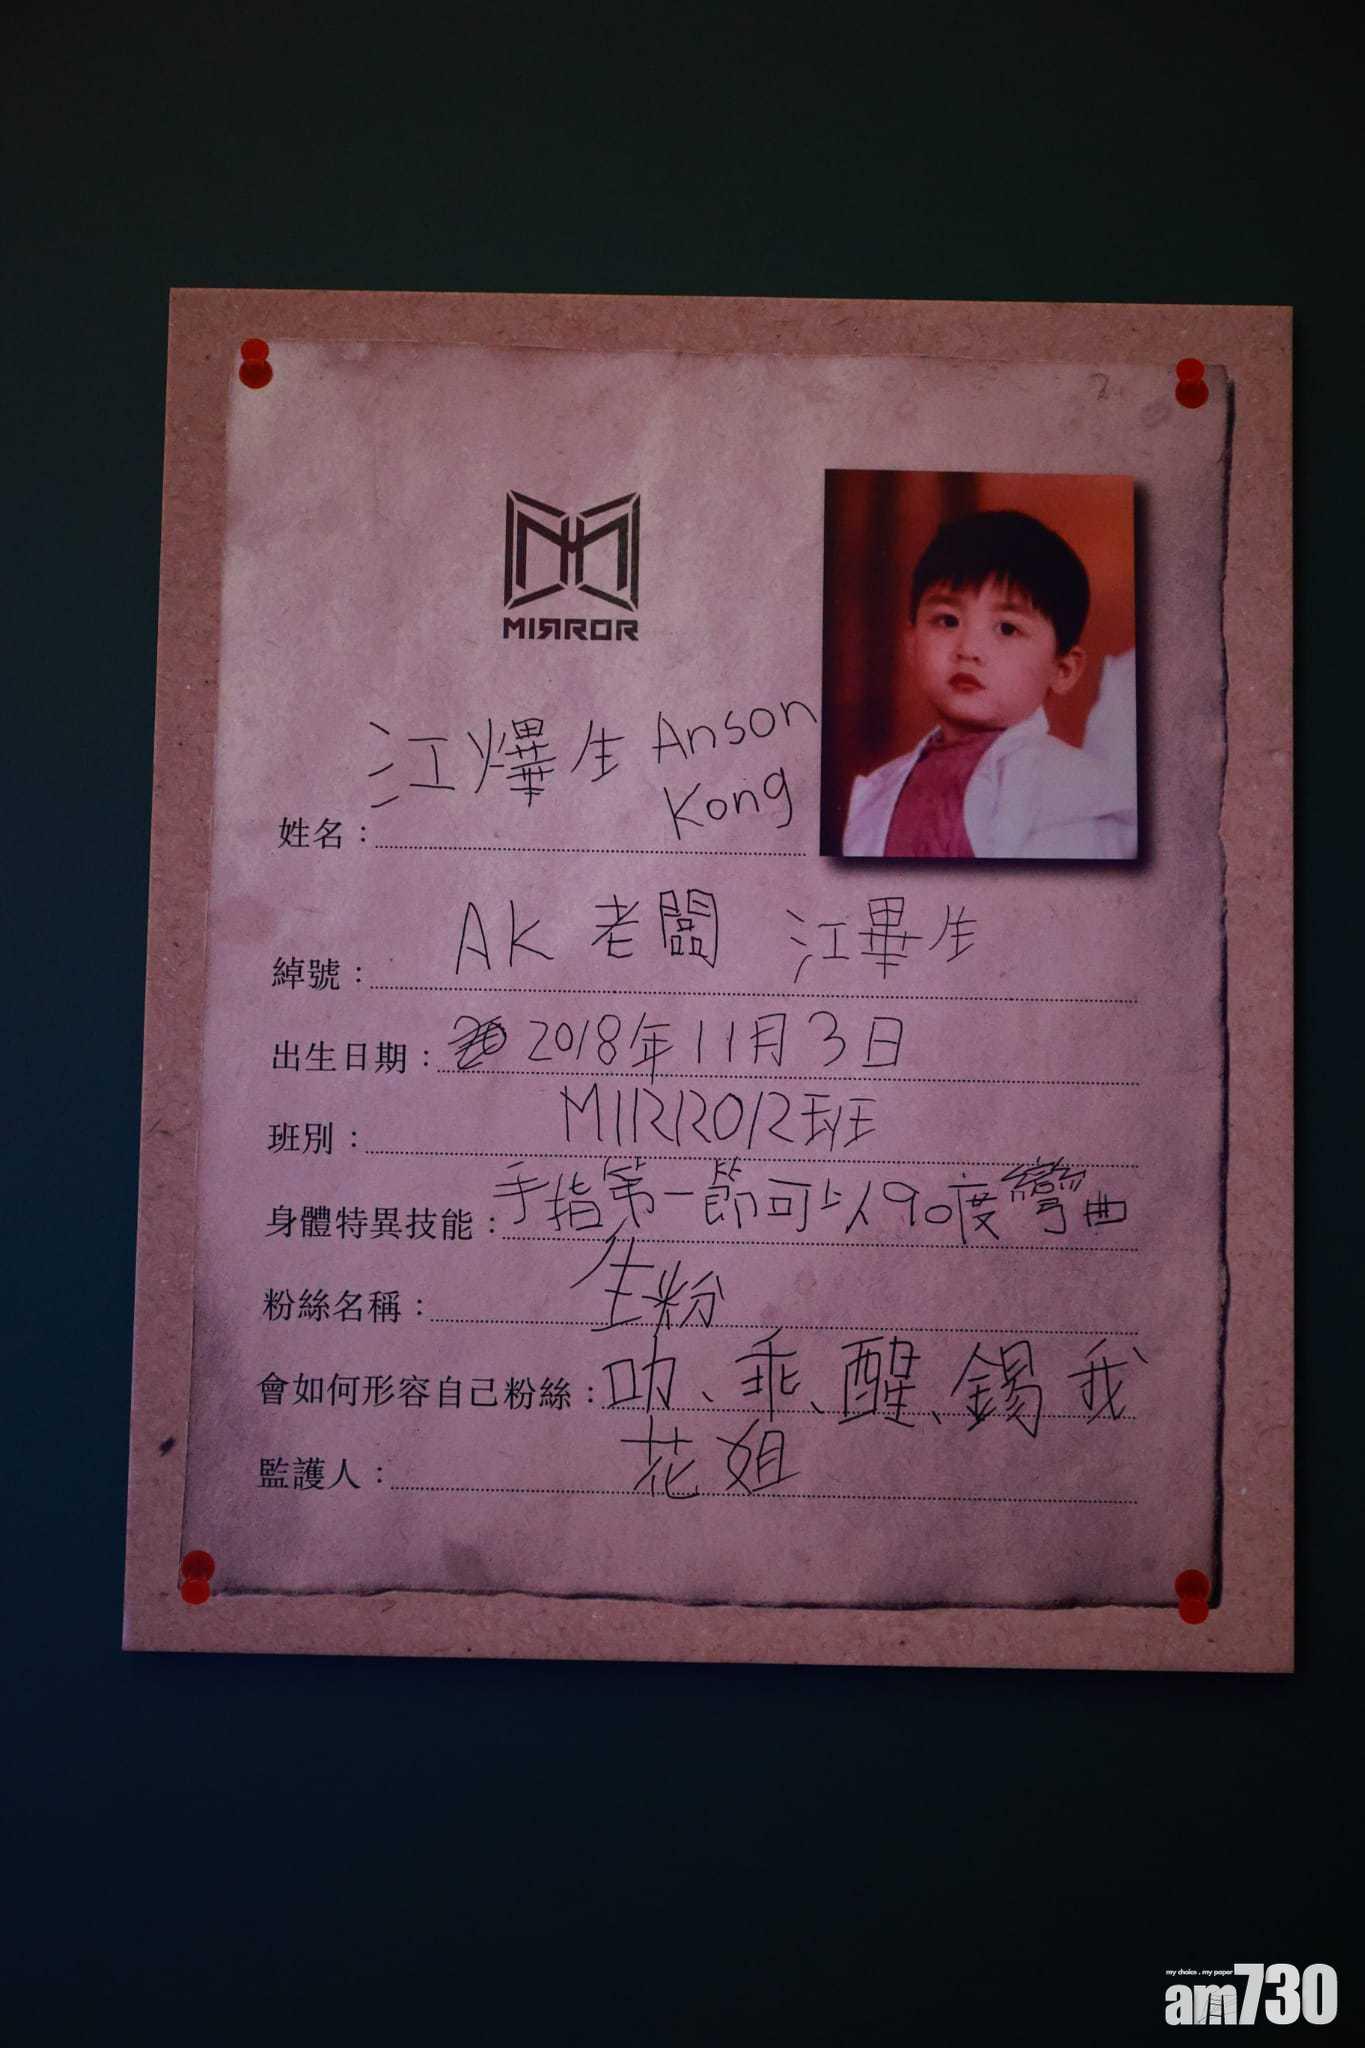 MIRROR
姓名：江𤒹生 Anson Kong
綽號：AK 老闆 江畢生
出生日期：2018年11月3日
班別：MIRROR班
身體特異技能：手指第一節可以90度彎曲
粉絲名稱：生粉
會如何形容自己粉絲：叻、乖、醒、錫我
監護人：花姐
my choice . my paper
am730